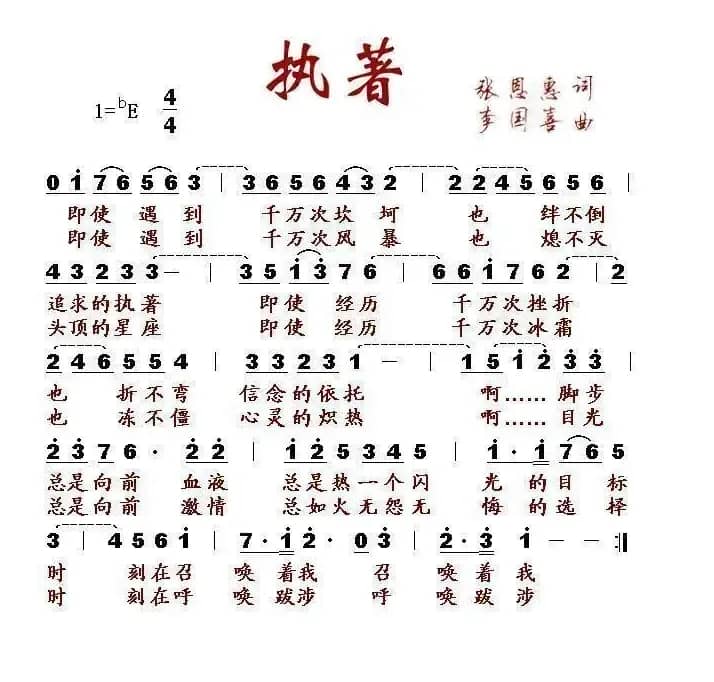 执著
张恩惠 词
李国喜 曲
1=ᵇE 4/4
0 1̇ 7 6 5 6 3 | 3 6 5 6 4 3 2 | 2 2 4 5 6 5 6 |
即使 遇 到 千万次坎 坷 也 绊不倒
即使 遇 到 千万次风 暴 也 熄不灭
4 3 2 3 3 3 — | 3 5 1̇ 3̇ 7 6 | 6 6 1̇ 7 6 2 | 2
追求的执著 即使 经历 千万次挫折
头顶的星座 即使 经历 千万次冰霜
2 4 6 5 5 4 | 3 3 2 3 1 — | 1 5 1̇ 2̇ 3̇ 3̇ |
也 折不弯 信念的依托 啊…… 脚步
也 冻不僵 心灵的炽热 啊…… 目光
2̇ 3̇ 7 6 · 2̇ 2̇ | 1̇ 2̇ 5 3 4 5 | 1̇ · 1̇ 7 6 5
总是向前 血液 总是热一个闪 光 的 目 标
总是向前 激情 总如火无怨无 悔 的 选 择
3 | 4 5 6 1̇ | 7 · 1̇ 2̇ · 0 3̇ | 2̇ · 3̇ 1̇ — :|
时 刻在召 唤着我 召 唤着我
时 刻在呼 唤跋涉 呼 唤跋涉